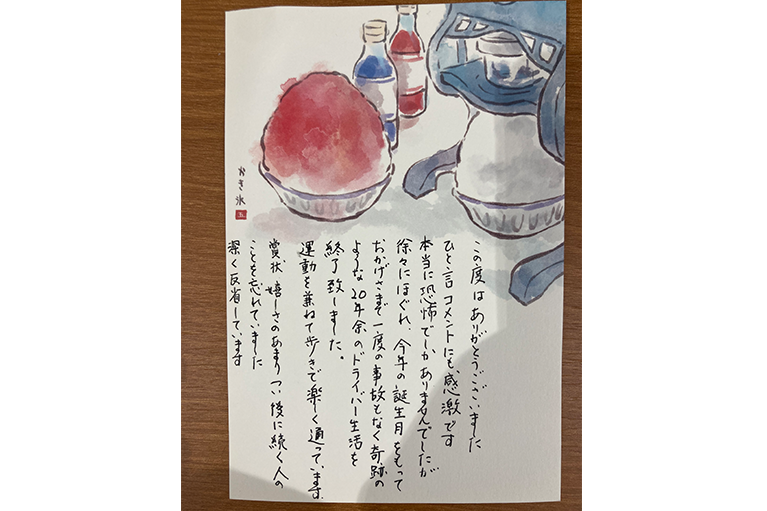 この度はありがとうございました
ひと言コメントにも、感激です
本当に恐怖でしかありませんでしたが
徐々にほぐれ、今年の誕生月をもって
おかげさまで一度の事故もなく奇跡の
ような20年余のドライバー生活を
終了致しました。
運動を兼ねて歩きで楽しく通っています。
賞状 嬉しさのあまりつい後に続く人の
ことを忘れていました
深く反省しています
かき氷